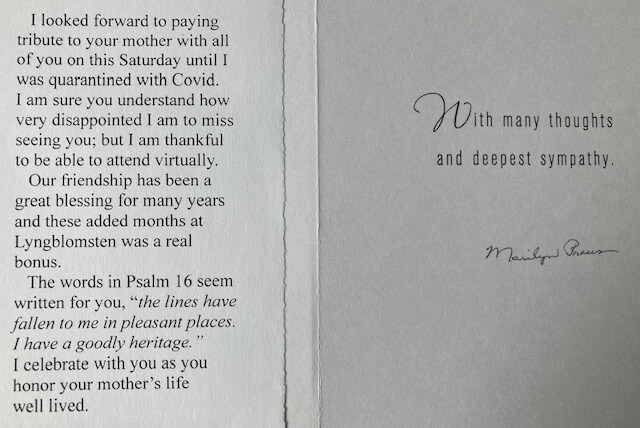 I looked forward to paying
tribute to your mother with all
of you on this Saturday until I
was quarantined with Covid.
I am sure you understand how
very disappointed I am to miss
seeing you; but I am thankful
to be able to attend virtually.
Our friendship has been a
great blessing for many years
and these added months at
Lyngblomsten was a real
bonus.
The words in Psalm 16 seem
written for you, “the lines have
fallen to me in pleasant places.
I have a goodly heritage.”
I celebrate with you as you
honor your mother’s life
well lived.
With many thoughts
and deepest sympathy.
Marilyn